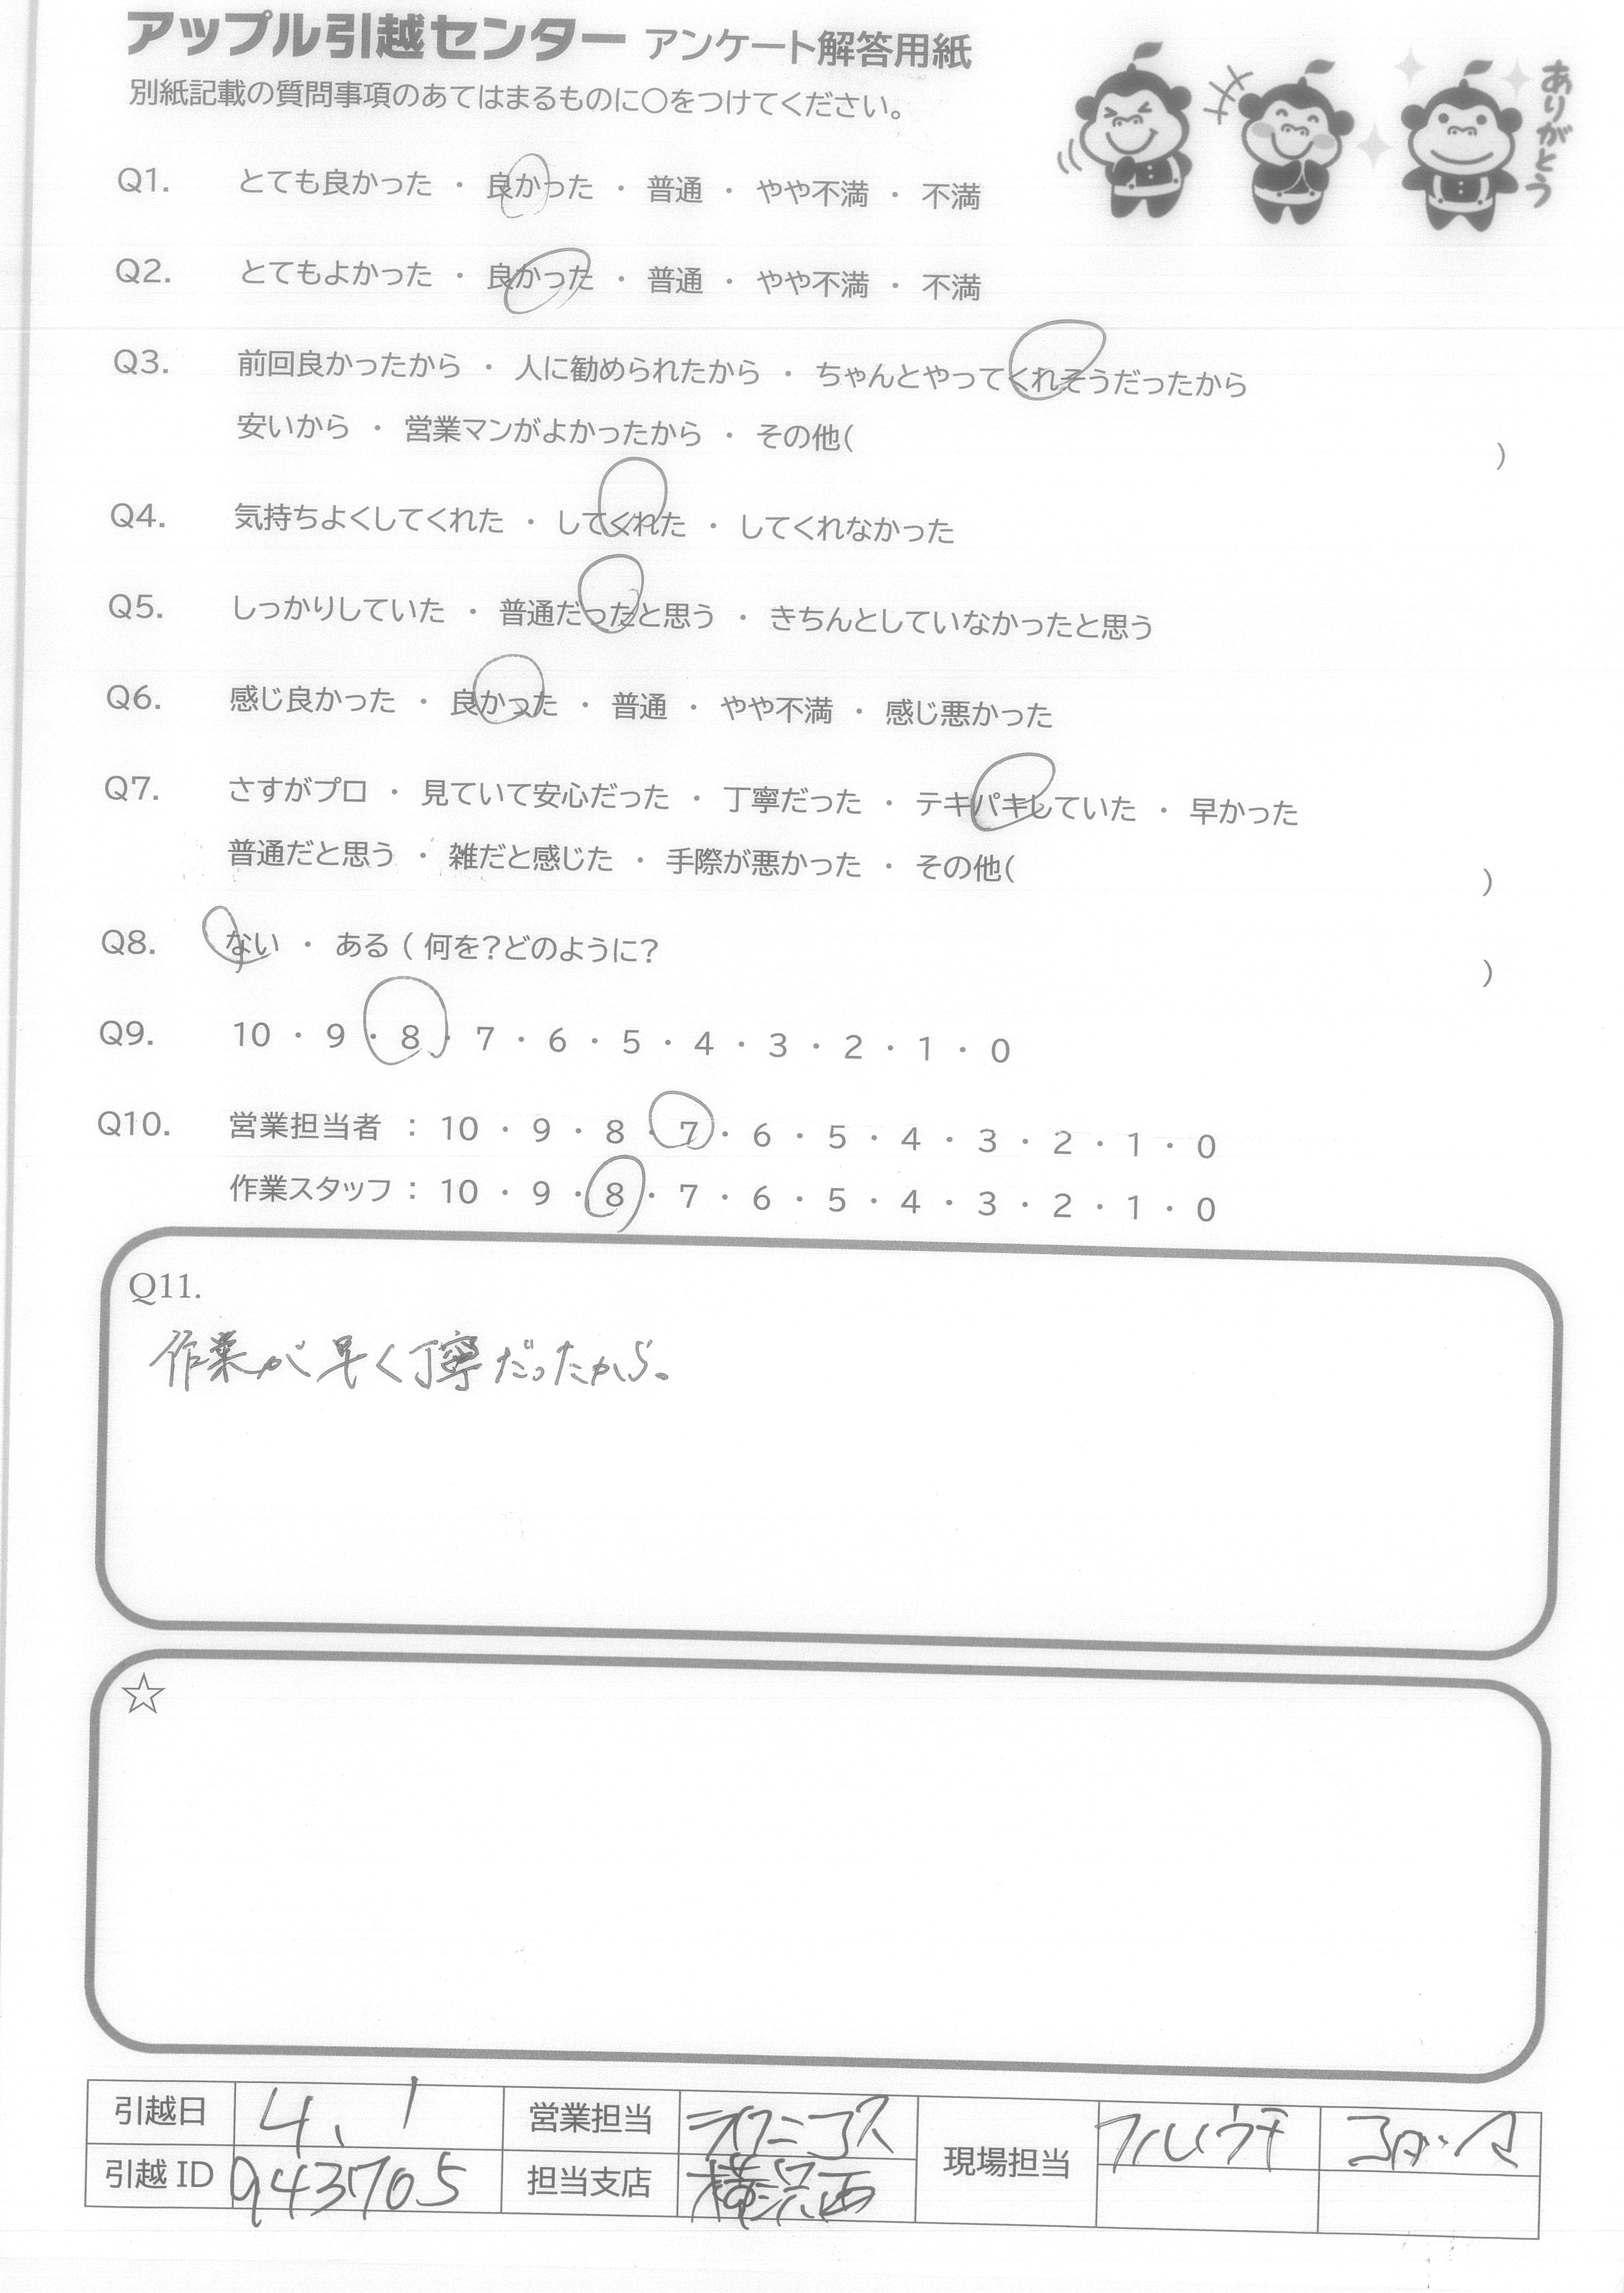 アップル引越センター アンケート解答用紙
別紙記載の質問事項のあてはまるものに○をつけてください。
ありがとう
Q1. とても良かった ・ 良かった ・ 普通 ・ やや不満 ・ 不満
Q2. とてもよかった ・ 良かった ・ 普通 ・ やや不満 ・ 不満
Q3. 前回良かったから ・ 人に勧められたから ・ ちゃんとやってくれそうだったから
安いから ・ 営業マンがよかったから ・ その他( )
Q4. 気持ちよくしてくれた ・ してくれた ・ してくれなかった
Q5. しっかりしていた ・ 普通だったと思う ・ きちんとしていなかったと思う
Q6. 感じ良かった ・ 良かった ・ 普通 ・ やや不満 ・ 感じ悪かった
Q7. さすがプロ ・ 見ていて安心だった ・ 丁寧だった ・ テキパキしていた ・ 早かった
普通だと思う ・ 雑だと感じた ・ 手際が悪かった ・ その他( )
Q8. ない ・ ある ( 何を?どのように? )
Q9. 10 ・ 9 ・ 8 ・ 7 ・ 6 ・ 5 ・ 4 ・ 3 ・ 2 ・ 1 ・ 0
Q10. 営業担当者 : 10 ・ 9 ・ 8 ・ 7 ・ 6 ・ 5 ・ 4 ・ 3 ・ 2 ・ 1 ・ 0
作業スタッフ : 10 ・ 9 ・ 8 ・ 7 ・ 6 ・ 5 ・ 4 ・ 3 ・ 2 ・ 1 ・ 0
Q11.
作業が早く丁寧だったから。
☆
引越日 4、1 営業担当 現場担当 フルウチ
引越 ID 943705 担当支店 横浜西